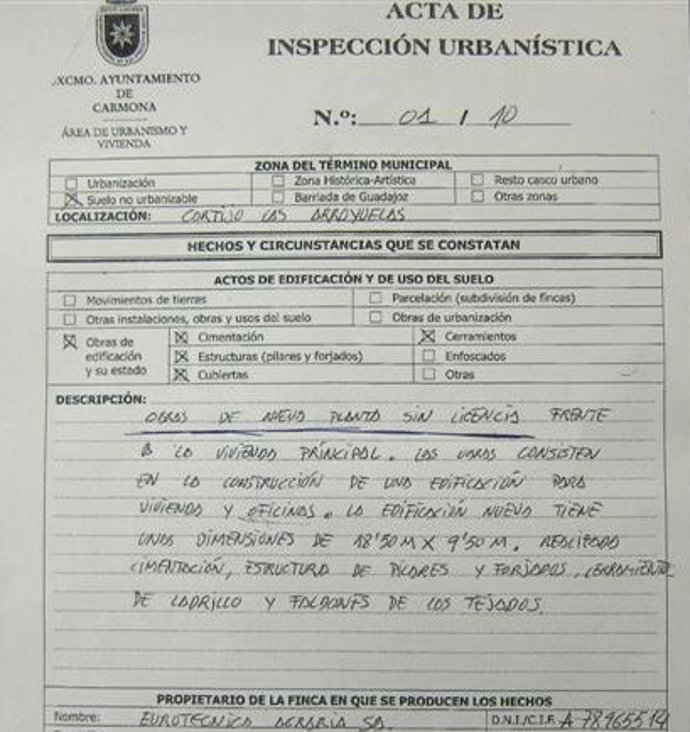 ACTA DE
INSPECCIÓN URBANÍSTICA
XCMO. AYUNTAMIENTO
DE
CARMONA
ÁREA DE URBANISMO Y
VIVIENDA
N.º: 01 / 10
ZONA DEL TÉRMINO MUNICIPAL
Urbanización Zona Histórica-Artística Resto casco urbano
Suelo no urbanizable Barriada de Guadajoz Otras zonas
LOCALIZACIÓN: CORTIJO LAS ARROYUELAS
HECHOS Y CIRCUNSTANCIAS QUE SE CONSTATAN
ACTOS DE EDIFICACIÓN Y DE USO DEL SUELO
Movimientos de tierras Parcelación (subdivisión de fincas)
Otras instalaciones, obras y usos del suelo Obras de urbanización
Obras de edificación y su estado
Cimentación Cerramientos
Estructuras (pilares y forjados) Enfoscados
Cubiertas Otras
DESCRIPCIÓN:
OBRAS DE NUEVA PLANTA SIN LICENCIA FRENTE
A LA VIVIENDA PRINCIPAL. LAS OBRAS CONSISTEN
EN LA CONSTRUCCIÓN DE UNA EDIFICACIÓN PARA
VIVIENDA Y OFICINAS. LA EDIFICACIÓN NUEVA TIENE
UNAS DIMENSIONES DE 18'50 M X 9'50 M. REALIZADA
CIMENTACIÓN, ESTRUCTURA DE PILARES Y FORJADOS, CERRAMIENTO
DE LADRILLO Y FALDONES DE LOS TEJADOS.
PROPIETARIO DE LA FINCA EN QUE SE PRODUCEN LOS HECHOS
Nombre: EUROTECNICA AGRARIA SA. D.N.I./C.I.F. A 78965514